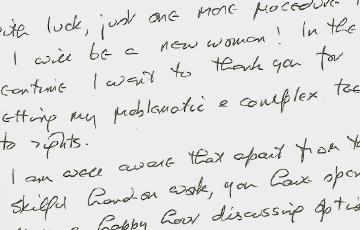 with luck, just one more procedure
I will be a new woman! In the
eantime I want to thank you for
etting my problematic & complex tee
to rights.
I am well aware that apart from
skilful hand-on work, you have spen
happy hour discussing optio